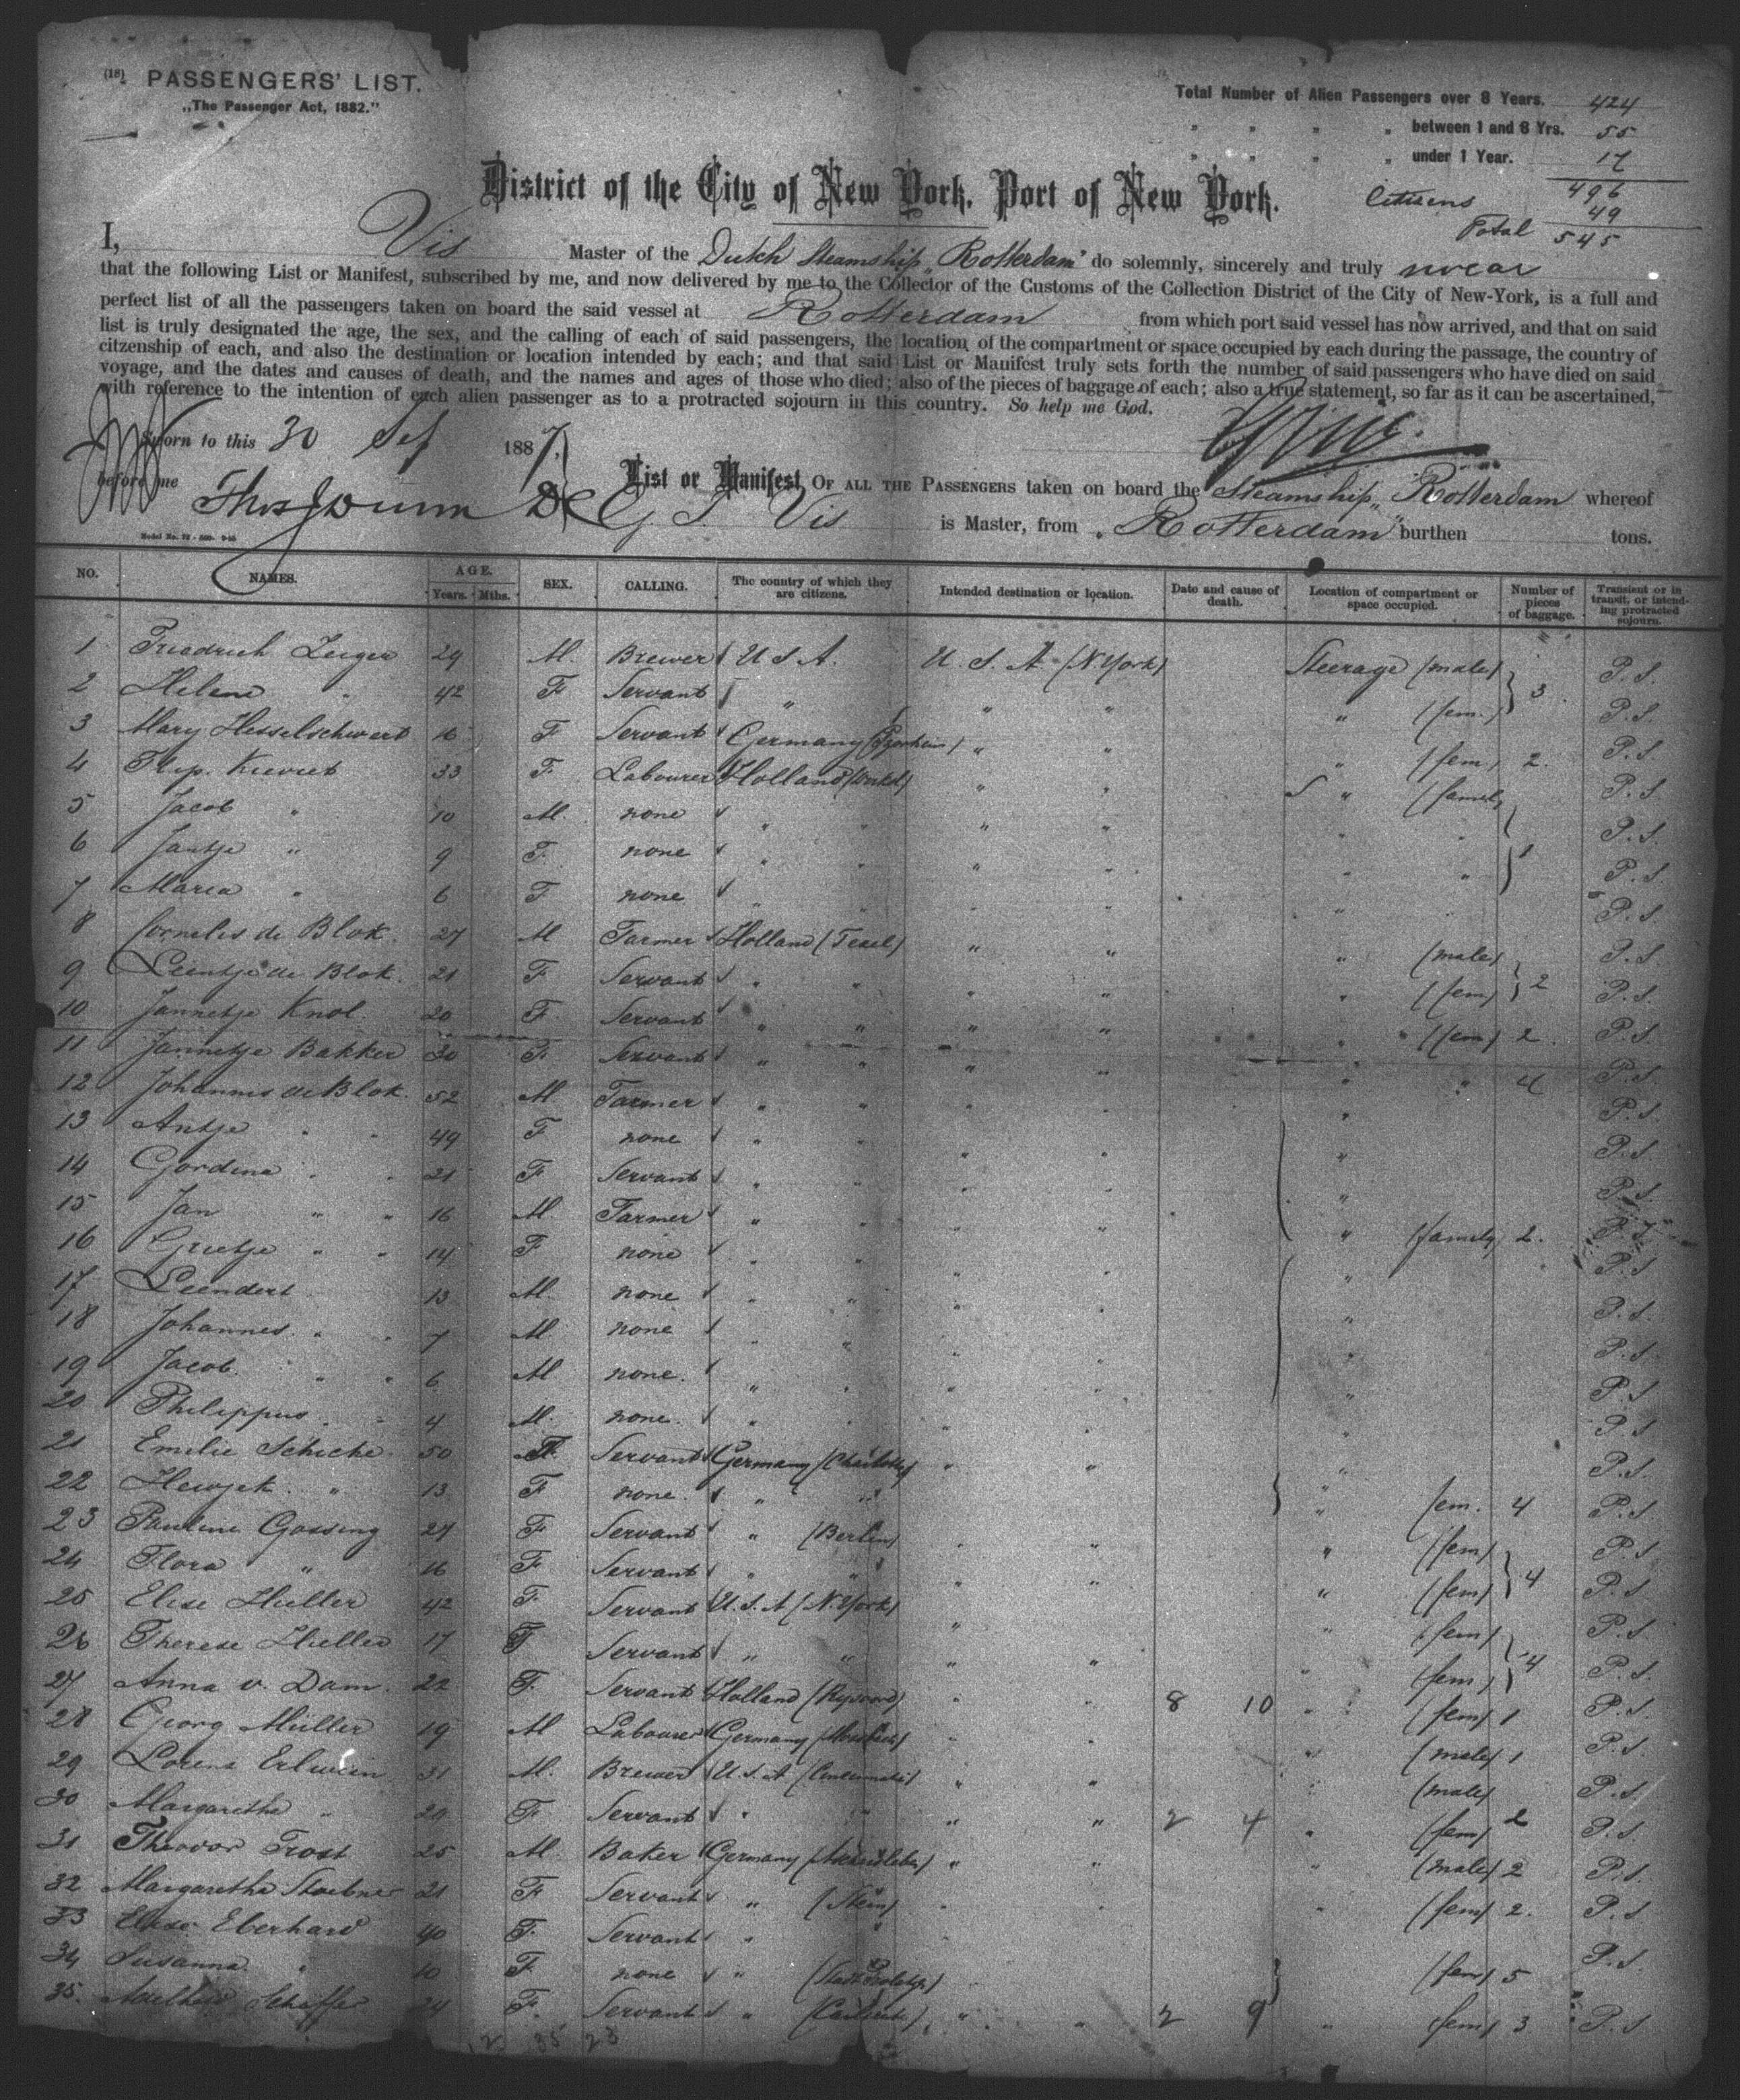 (18) PASSENGERS' LIST.
„The Passenger Act, 1882."
Total Number of Alien Passengers over 8 Years. 424
„ „ „ „ between 1 and 8 Yrs. 55
„ „ „ „ under 1 Year. 17
496
Citizens 49
Total 545
District of the City of New York, Port of New York.
I, Vis Master of the Dutch Steamship „Rotterdam" do solemnly, sincerely and truly swear
that the following List or Manifest, subscribed by me, and now delivered by me to the Collector of the Customs of the Collection District of the City of New-York, is a full and
perfect list of all the passengers taken on board the said vessel at Rotterdam from which port said vessel has now arrived, and that on said
list is truly designated the age, the sex, and the calling of each of said passengers, the location of the compartment or space occupied by each during the passage, the country of
citzenship of each, and also the destination or location intended by each; and that said List or Manifest truly sets forth the number of said passengers who have died on said
voyage, and the dates and causes of death, and the names and ages of those who died; also of the pieces of baggage of each; also a true statement, so far as it can be ascertained,
with reference to the intention of each alien passenger as to a protracted sojourn in this country. So help me God.
Sworn to this 30 Sep 1887,
before me
List or Manifest OF ALL THE PASSENGERS taken on board the Steamship „Rotterdam" whereof
G. J. Vis is Master, from „Rotterdam" burthen tons.
NO. NAMES. AGE. Years. Mths. SEX. CALLING. The country of which they are citizens. Intended destination or location. Date and cause of death. Location of compartment or space occupied. Number of pieces of baggage. Transient or in transit, or intending protracted sojourn.
1 Friedrich 29 M. Brewer U S A. U. S. A. (N. York) Steerage (male) P. S.
2 Helene " 42 F Servant " " " " (fem.) 3 P. S.
3 Mary Hesselschwert 16 F Servant Germany " " " (fem) 2. P. S.
4 33 F. Labourer Holland " " " (family P. S.
5 Jacob " 10 M. none " " " " " " P. S.
6 Jantje " 9 F. none " " " " " " 1 P. S.
7 Maria " 6 F none " " " " " P. S.
8 Cornelis de Blok. 27 M Farmer Holland (Texel) " " " (male) P. S.
9 Leentje de Blok. 21 F Servant " " " " " (fem) 2 P. S.
10 Jannetje Knol. 20 F. Servant " " " " " (fem) 2. P. S.
11 Jannetje Bakker 30 F Servant " " " " " " 4 P. S.
12 Johannes de Blok. 52 M Farmer " " " " P. S.
13 Antje " " 49 F none " " " " P. S.
14 Gordina " " 21 F Servant " " " " P. S.
15 Jan " " 16 M. Farmer " " " " " (family 2. P. S.
16 Grietje " " 14 F none " " " " " P. S.
17 Leendert 13 M. none " " " " " P. S.
18 Johannes. " " 7 M none " " " " " P. S.
19 Jacob. " " 6 M none. " " " " " P. S.
20 Philippus. " " 4 M. none. " " " " P. S.
21 Emilie Schicke 50 F. Servant Germany " " " P. S.
22 " 13. F none. " " " fem. 4 P. S.
23 Pauline Gossing 27 F Servant " (Berlin) " " " (fem) P. S
24 Flora " 16 F Servant " " " " " (fem) 4 P. S.
25 Elise 42 F. Servant U. S. A (N. York) " " (fem) P. S.
26 Therese 17 F Servant " " " " " (fem) 4 P. S.
27 Anna v. Dam. 22 F. Servant Holland " " 8 10 " (fem) 1 P. S.
28 Georg Müller 19 M Labourer Germany " " " (male) 1 P. S.
29 Lorenz 31 M. Brewer U. S. A " " " (male) P. S.
30 Margaretha " 29 F Servant " " " " 2 4 " (fem) 2 P. S.
31 Theodor Frost 25 M. Baker Germany " " " (male) 2 P. S.
32 Margaretha 21 F Servant " (Stein) " " " (fem) 2. P. S
33 Elise Eberhard 40 F. Servant " "
34 Susanna " 10 F. none " (fem) 5 P. S.
35. Schaffer 24 F. Servant " " " 2 9 " (fem) 3 P. S
12 35 23